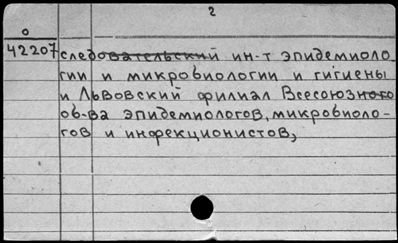 2
0
42207 следовательский ин-т эпидемиоло-
гии и микробиологии и гигиены
и Львовский филиал Всесоюзного
об-ва эпидемиологов, микробиоло-
гов и инфекционистов,